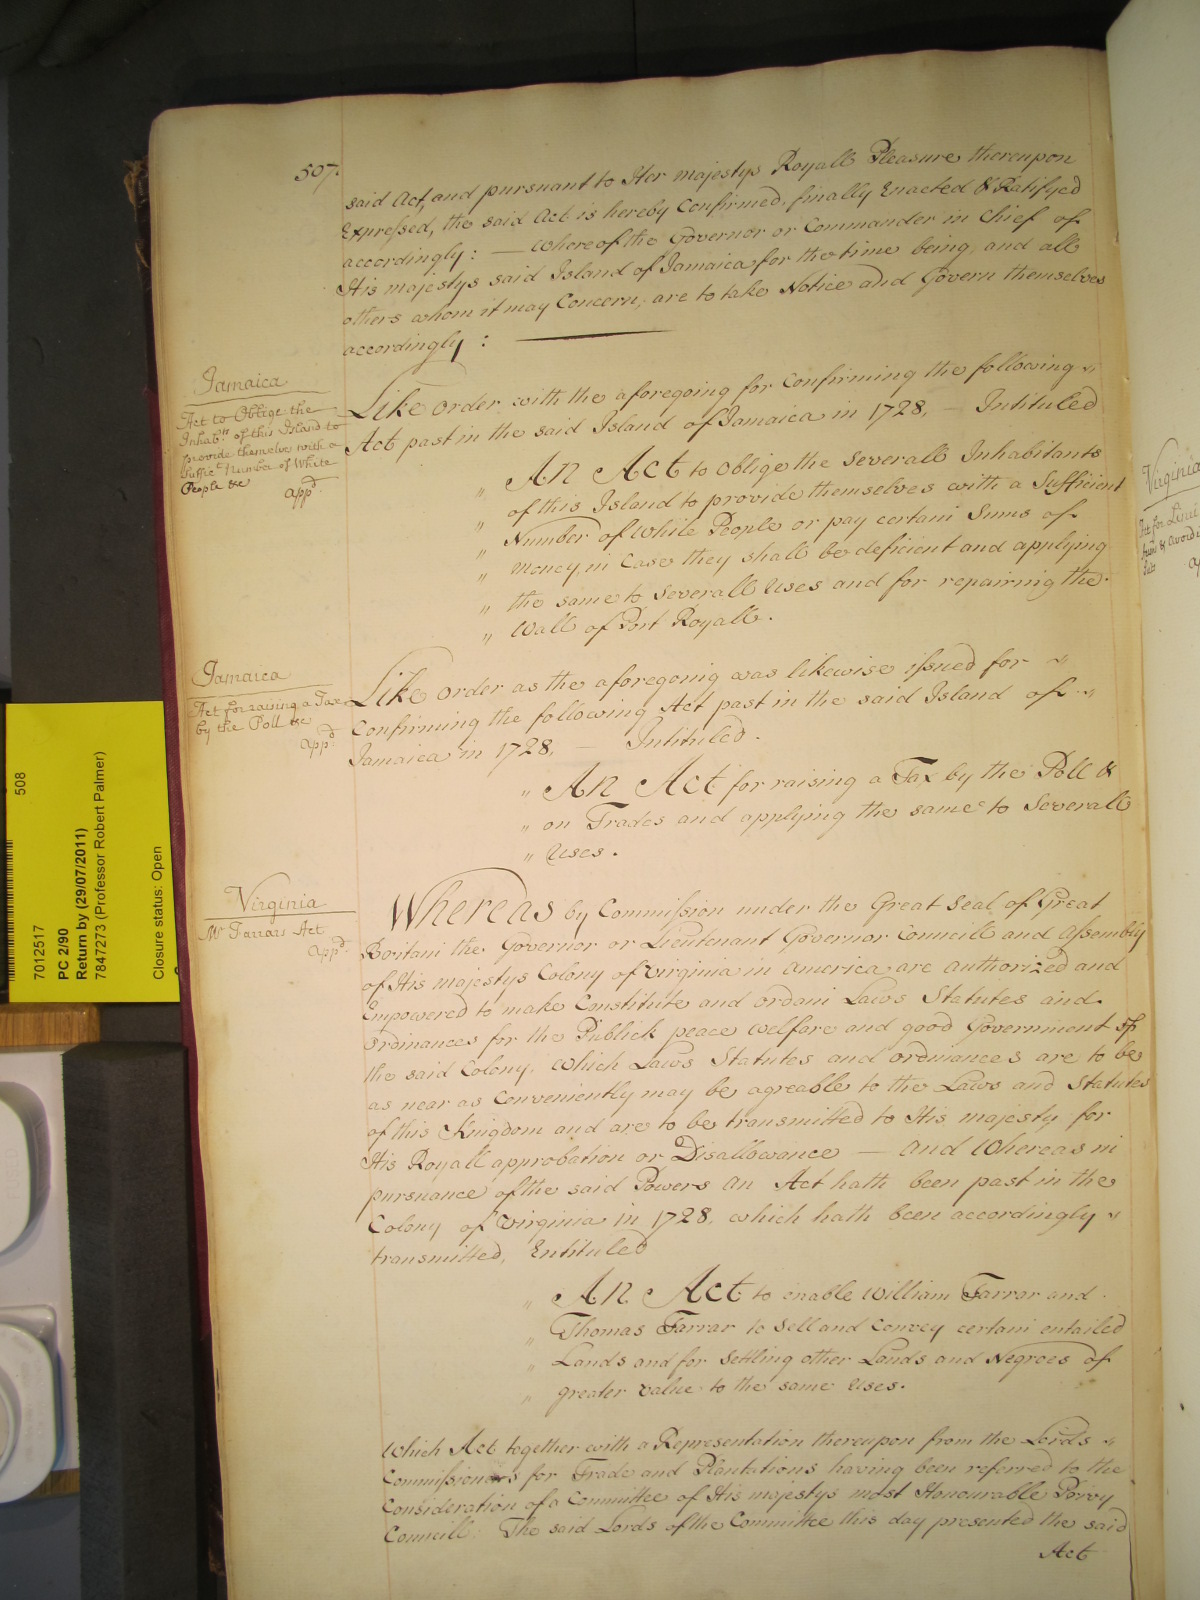 507.
said Act, and pursuant to Her majestys Royall Pleasure thereupon
Expressed, the said Act is hereby Confirmed, finally Enacted & Ratifyed
accordingly: — Whereof the Governor or Commander in Chief of
His majestys said Island of Jamaica for the time being, and all
others whom it may Concern, are to take Notice and Govern themselves
accordingly :
Jamaica
Act to Oblige the
Inhabts. of this Island to
provide themselves with a
Suffict. Number of White
People &c
appd.
Like Order with the aforegoing for Confirming the following
Act past in the said Island of Jamaica in 1728, — Intituled
" An Act to oblige the Severall Inhabitants
" of this Island to provide themselves with a Sufficient
" Number of White People or pay certain Sums of
" money, in Case they shall be deficient and applying
" the same to Severall Uses and for repairing the
" Wall of Port Royall.
Jamaica
Act for raising a Tax
by the Poll &c
appd.
Like Order as the aforegoing was likewise issued for
Confirming the following Act past in the said Island of
Jamaica in 1728, — Intituled.
" An Act for raising a Tax by the Poll &
" on Trades and applying the same to Severall
" Uses.
Virginia
Mr Farrars Act
appd.
Whereas by Commission under the Great Seal of Great
Britain the Governor or Lieutenant Governor Councill and Assembly
of His majestys Colony of Virginia in America are authorized and
Empowered to make Constitute and ordain Laws Statutes and
Ordinances for the Publick peace welfare and good Government of
the said Colony. Which Laws Statutes and ordinances are to be
as near as conveniently may be agreable to the Laws and Statutes
of this Kingdom and are to be transmitted to His majesty for
His Royall approbation or Disallowance — And Whereas in
pursuance of the said Powers an Act hath been past in the
Colony of Virginia in 1728, which hath been accordingly
transmitted, Entituled
" An Act to enable William Farrar and
" Thomas Farrar to Sell and Convey certain entailed
" Lands and for Settling other Lands and Negroes of
" greater value to the same Uses.
Which Act together with a Representation thereupon from the Lords
Commissioners for Trade and Plantations having been referred to the
Consideration of a Committee of His majestys most Honourable Privy
Councill: The said Lords of the Committee this day presented the said
Act
508
7012517
PC 2/90
Return by (29/07/2011)
7847273 (Professor Robert Palmer)
Closure status: Open
Virginia